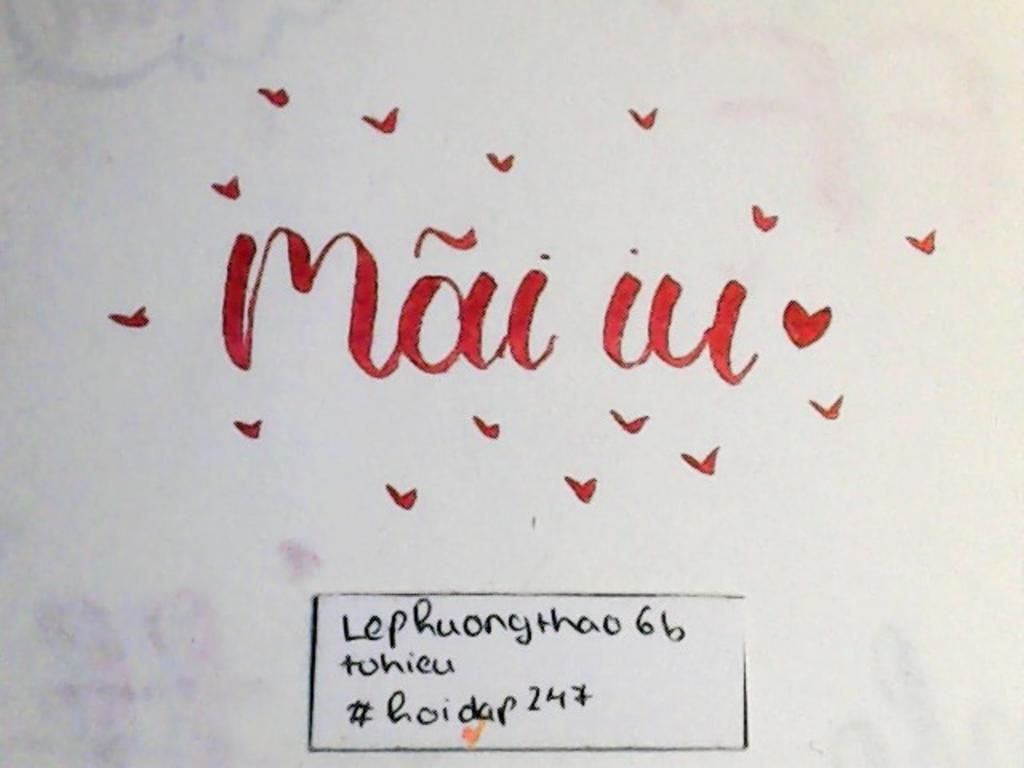 Mãi iu
Lephuongthao6b
tohieu
#hoidap247